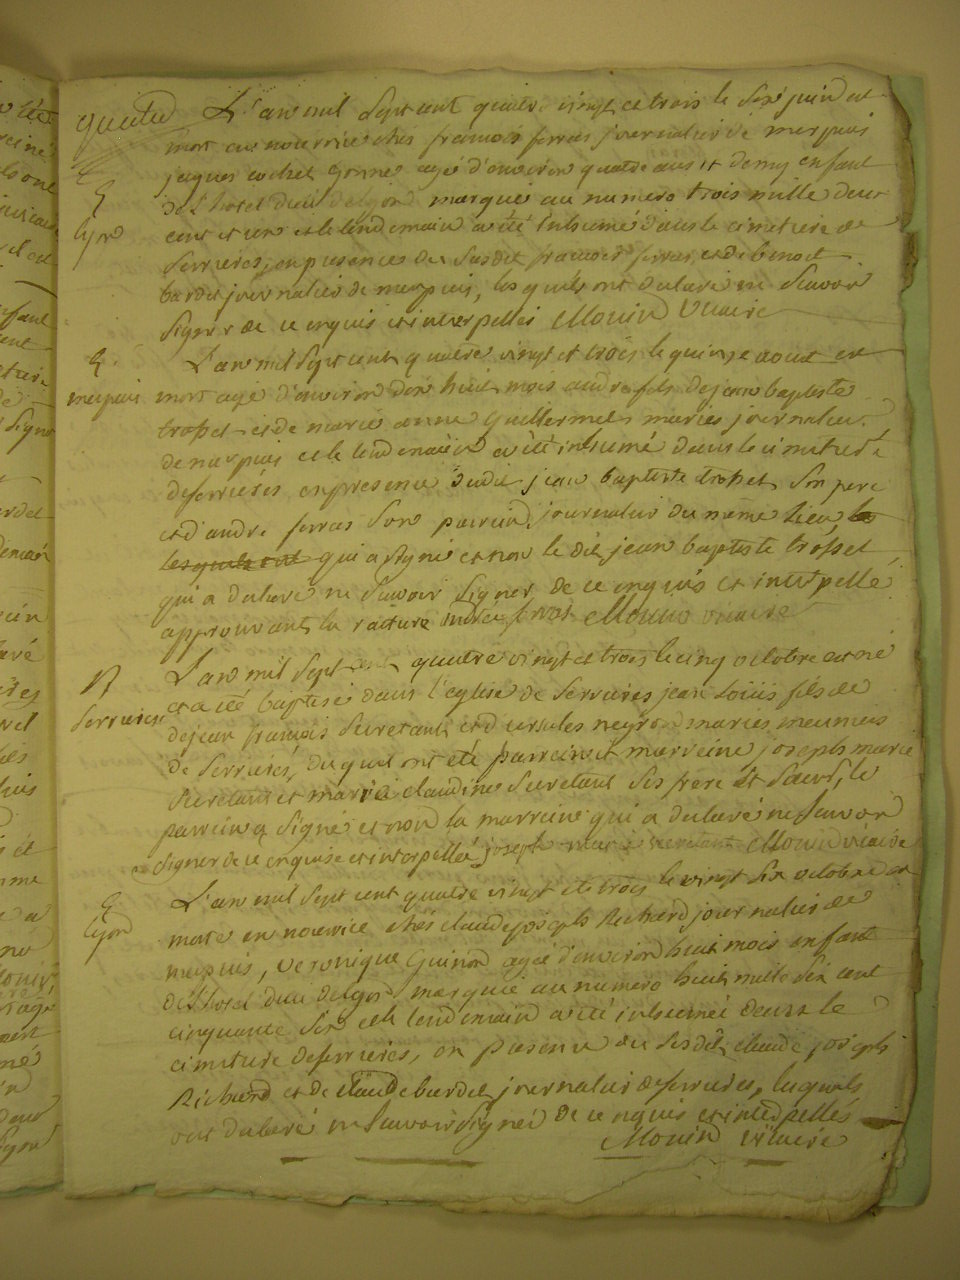 quatre
L'an mil sept cent quatre vingt et trois le six juin est
mort en nourrice chés francois ferras journalier de merpuis
jaques cochet gonne agé d'environ quatre ans et demy enfant
de l'hotel dieu de lyon marqué au numero trois mille deux
cent et un et le lendemain a été inhumé dans le cimetiere de
serrieres, en presences du susdit francois ferras, et de benoit
bardet journalier de merpuis, les quels ont declaré ne scavoir
signer de ce enquis et interpellés Mouin vicaire
L'an mil sept cent quatre vingt et trois le quinze aout est
mort agé d'environ dix huit mois andré fils de jean baptiste
trosset et de marie anne guillermet mariés journaliers
de merpuis et le lendemain a été inhumé dans le cimetiere
de serrières en presence dudit jean baptiste trosset son pere
et d'andré ferras son parrein, journalier du meme lieu
lesquels ont qui a signé et non le dit jean baptiste trosset
qui a declaré ne scavoir signer de ce enquis et interpellé
approuvant la rature andré ferras Mouin vicaire
L'an mil sept cent quatre vingt et trois le cinq octobre est né
et a été baptisé dans l'eglise de serrieres jean loüis fils de
de jean françois secretant et d'ursules negrod mariés meuniers
de serrieres, du quel ont été parrein et marreine joseph marie
secretant et marie claudine secretant ses frere et soeur, le
parrein a signé et non la marreine qui a declaré ne scavoir
signer de ce enquise et interpellée joseph marie secretant Mouin vicaire
L'an mil sept cent quatre vingt et trois le vingt six octobre est
morte en nourrice chés claude joseph Richard journalier de
merpuis, veronique Guinon agée d'environ huit mois enfant
de l'hotel dieu de lyon marquée au numero huit mille six cent
cinquante six et le lendemain a été inhumée dans le
cimetiere de serrieres, en presence du susdit claude joseph
Richard et de claude burdet journalier de serrieres, lesquels
ont declaré ne scavoir signer de ce enquis et interpellés
Mouin vicaire
lyon
merpuis
serrieres
lyon